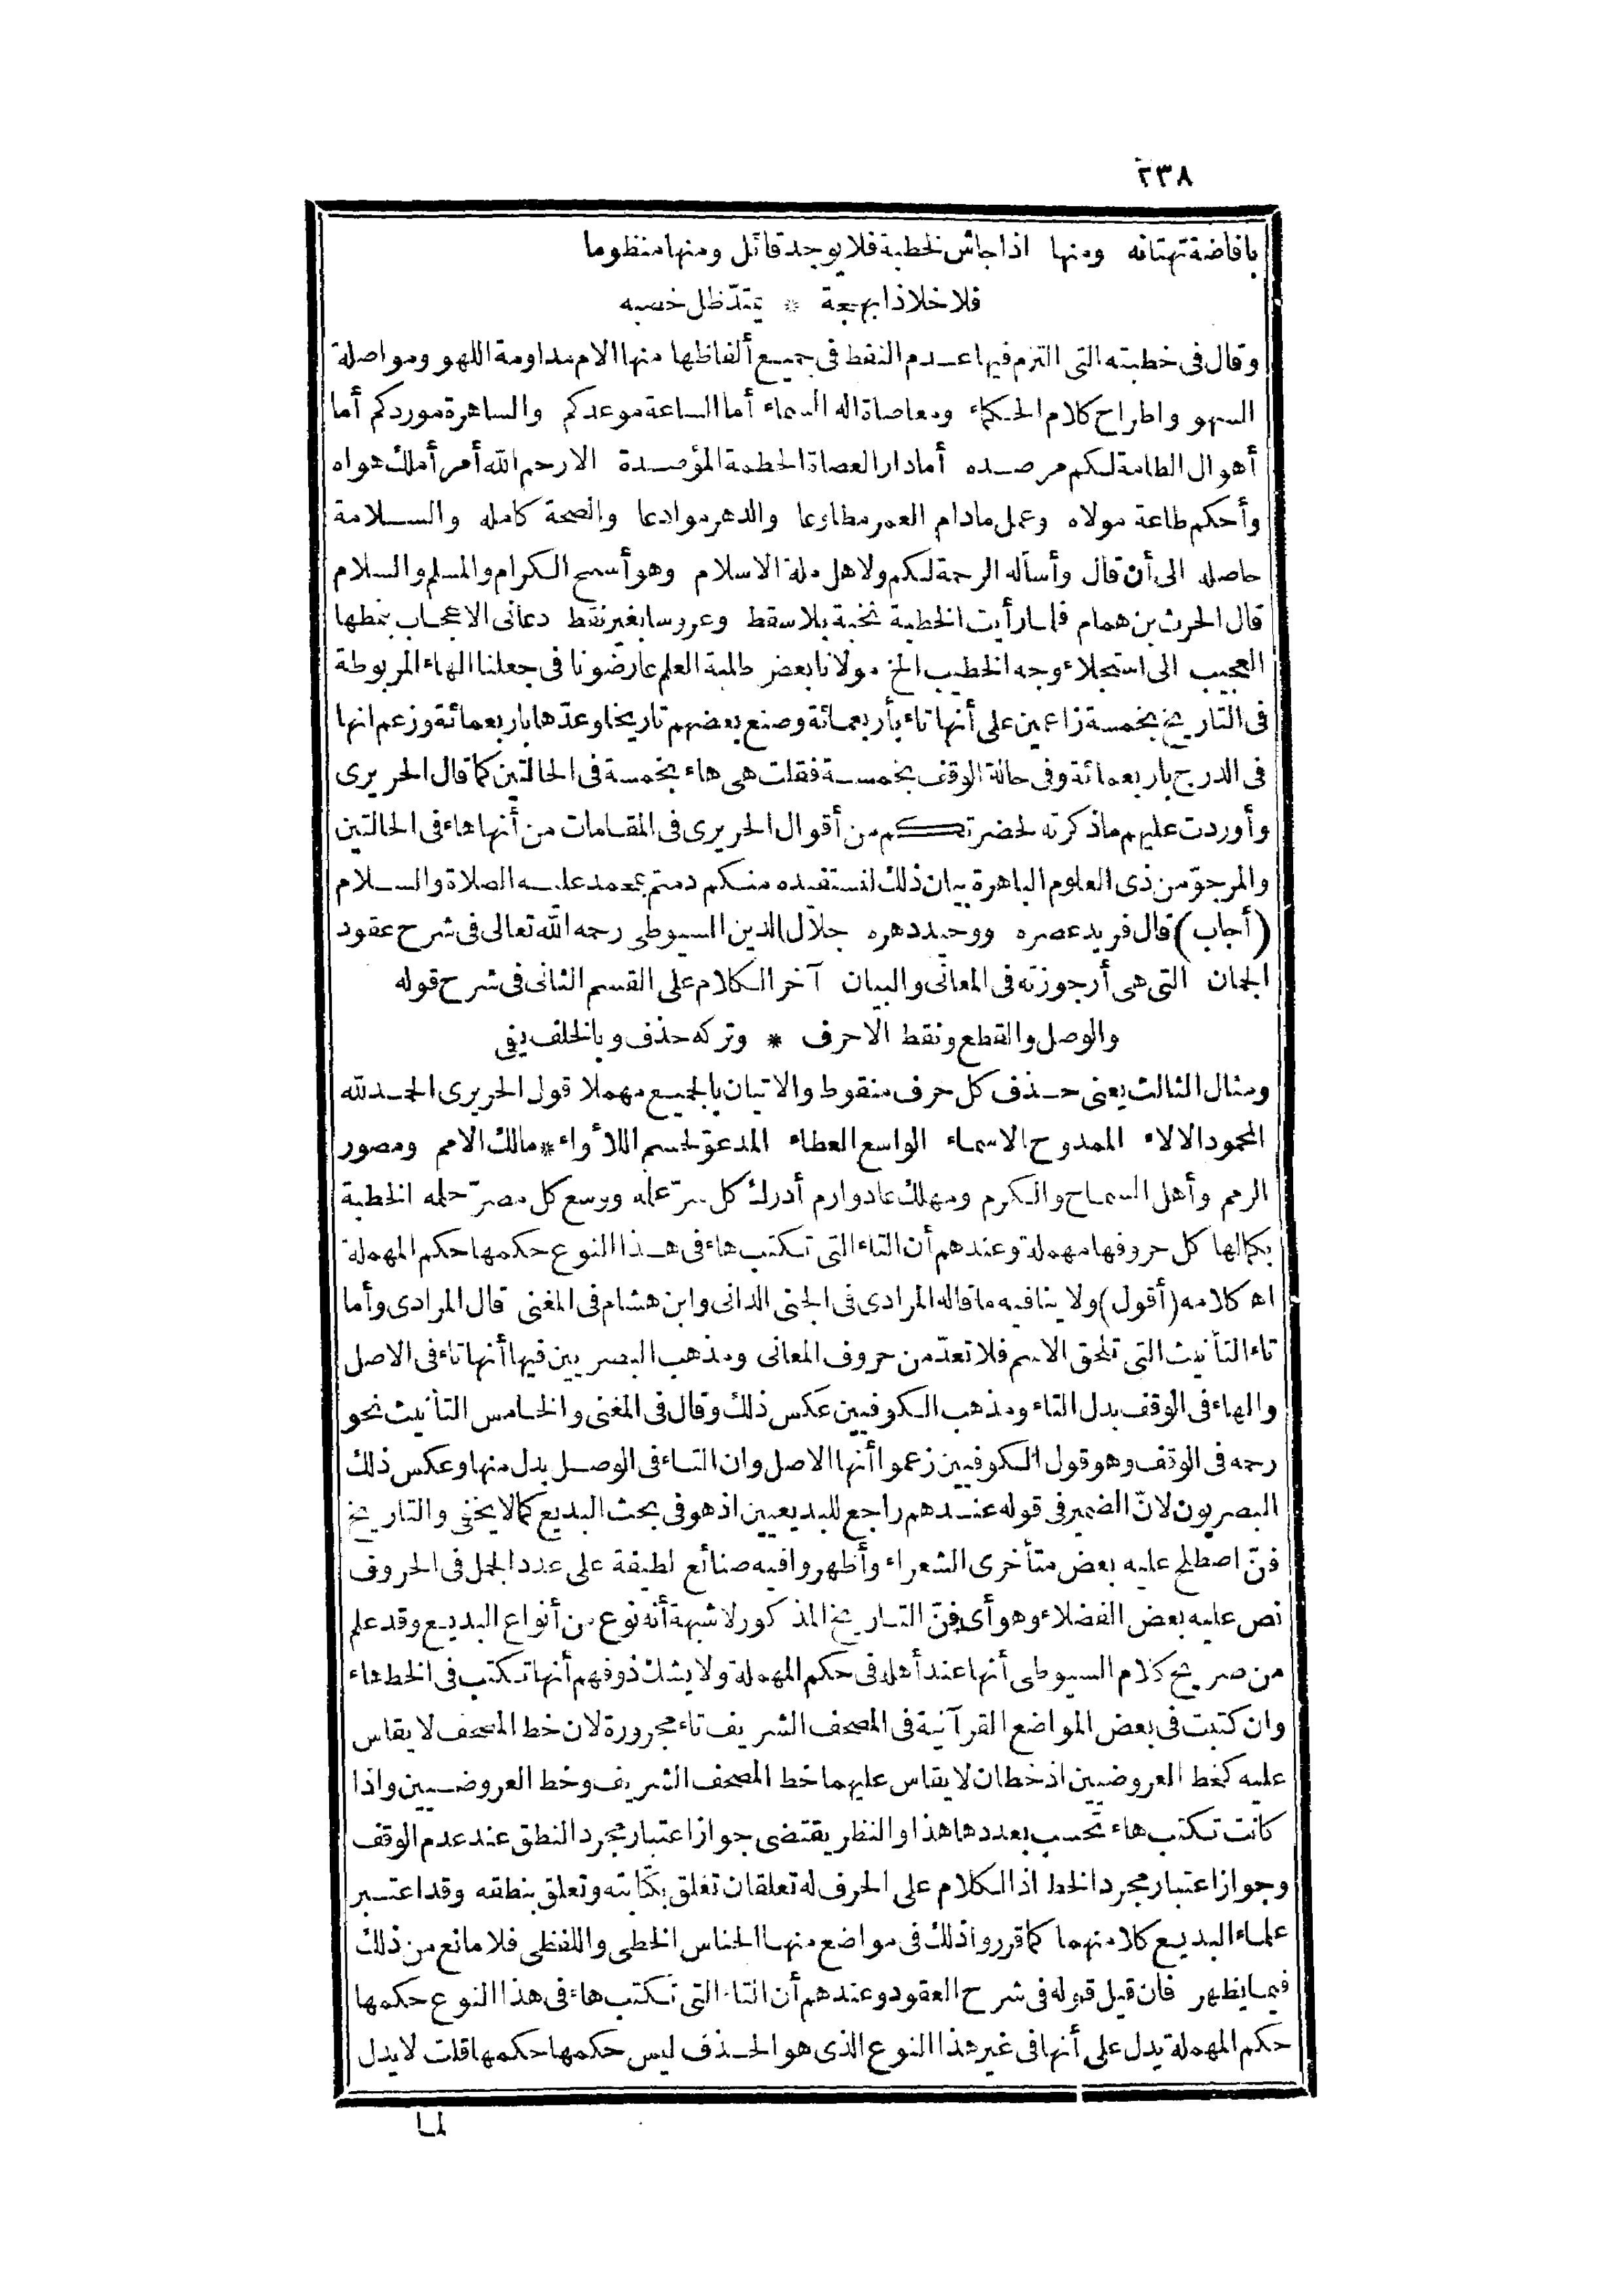 ٢٣٨
بافاضة تهتانه ومنها اذا جاش لخطبة فلا يوجد قائل ومنها منظوما
فلا خلا ذا بهجة * يمتدّ ظل خصبه
وقال فى خطبته التى التزم فيها عدم النقط فى جميع ألفاظها منها الام مداومة اللهو ومواصلة
السهو واطراح كلام الحكماء ومعاصاة اله السماء أما الساعة موعدكم والساهرة موردكم أما
أهوال الطامة لكم مرصده أما دار العصاة الحطمة المؤصدة الا رحم الله أمر أملك هواه
وأحكم طاعة مولاه وعمل مادام العمر مطاوعا والدهر موادعا والصحة كامله والسلامة
حاصله الى أن قال وأسأله الرحمة لكم ولاهل ملة الاسلام وهو أسمح الكرام والمسلم والسلام
قال الحرث بن همام فلما رأيت الخطبة نخبة بلا سقط وعروسا بغير نقط دعانى الاعجاب بنمطها
العجيب الى استجلاء وجه الخطيب الخ مولانا بعض طلبة العلم عارضونا فى جعلنا الهاء المربوطة
فى التاريخ بخمسة زاعمين على أنها تاء بأربعمائة وصنع بعضهم تاريخا وعدّها باربعمائة وزعم انها
فى الدرج باربعمائة وفى حالة الوقف بخمسة فقلت هى هاء بخمسة فى الحالتين كما قال الحريرى
وأوردت عليهم ماذكرته لحضرتكم من أقوال الحريرى فى المقامات من أنها هاء فى الحالتين
والمرجوّ من ذى العلوم الباهرة بيان ذلك لنستفيده منكم دمتم بمحمد عليه الصلاة والسلام
(أجاب) قال فريد عصره ووحيد دهره جلال الدين السيوطى رحمه الله تعالى فى شرح عقود
الجمان التى هى أرجوزته فى المعانى والبيان آخر الكلام على القسم الثانى فى شرح قوله
والوصل والقطع ونقط الاحرف * وتركه حذف وبالخلف يفى
ومثال الثالث يعنى حذف كل حرف منقوط والاتيان بالجميع مهملا قول الحريرى الحمد لله
المحمود الالاء الممدوح الاسماء الواسع العطاء المدعوّ لحسم اللأواء * مالك الامم ومصور
الرمم وأهل السماح والكرم ومهلك عاد وارم أدرك كل سرّ علمه ووسع كل مصرّ حلمه الخطبة
بكمالها كل حروفها مهملة وعندهم أن التاء التى تكتب هاء فى هذا النوع حكمها حكم المهملة
اه كلامه (أقول) ولا ينافيه ما قاله المرادى فى الجنى الدانى وابن هشام فى المغنى قال المرادى وأما
تاء التأنيث التى تلحق الاسم فلا تعدّ من حروف المعانى ومذهب البصريين فيها أنها تاء فى الاصل
والهاء فى الوقف بدل التاء ومذهب الكوفيين عكس ذلك وقال فى المغنى والخامس التأنيث نحو
رحمه فى الوقف وهو قول الكوفيين زعموا أنها الاصل وان التاء فى الوصل بدل منها وعكس ذلك
البصريون لانّ الضمير فى قوله عندهم راجع للبديعيين اذ هو فى بحث البديع كما لا يخفى والتاريخ
فنّ اصطلح عليه بعض متأخرى الشعراء وأظهروا فيه صنائع لطيفة على عدد الجمل فى الحروف
نص عليه بعض الفضلاء وهو أى فنّ التاريخ المذكور لا شبهة أنه نوع من أنواع البديع وقد علم
من صريح كلام السيوطى أنها عند أهله فى حكم المهملة ولا يشك ذو فهم أنها تكتب فى الخط هاء
وان كتبت فى بعض المواضع القرآنية فى المصحف الشريف تاء مجرورة لان خط المصحف لا يقاس
عليه كخط العروضيين اذ خطان لا يقاس عليهما خط المصحف الشريف وخط العروضيين واذا
كانت تكتب هاء تحسب بعددها هذا والنظر يقتضى جواز اعتبار مجرد النطق عند عدم الوقف
وجواز اعتبار مجرد الخط اذ الكلام على الحرف له تعلقان تعلق بكتابته وتعلق بنطقه وقد اعتبر
علماء البديع كلا منهما كما قرروا ذلك فى مواضع منها الجناس الخطى واللفظى فلا مانع من ذلك
فيما يظهر فان قيل قوله فى شرح العقود وعندهم أن التاء التى تكتب هاء فى هذا النوع حكمها
حكم المهملة يدل على أنها فى غير هذا النوع الذى هو الحذف ليس حكمها حكمها قلت لا يدل
لما